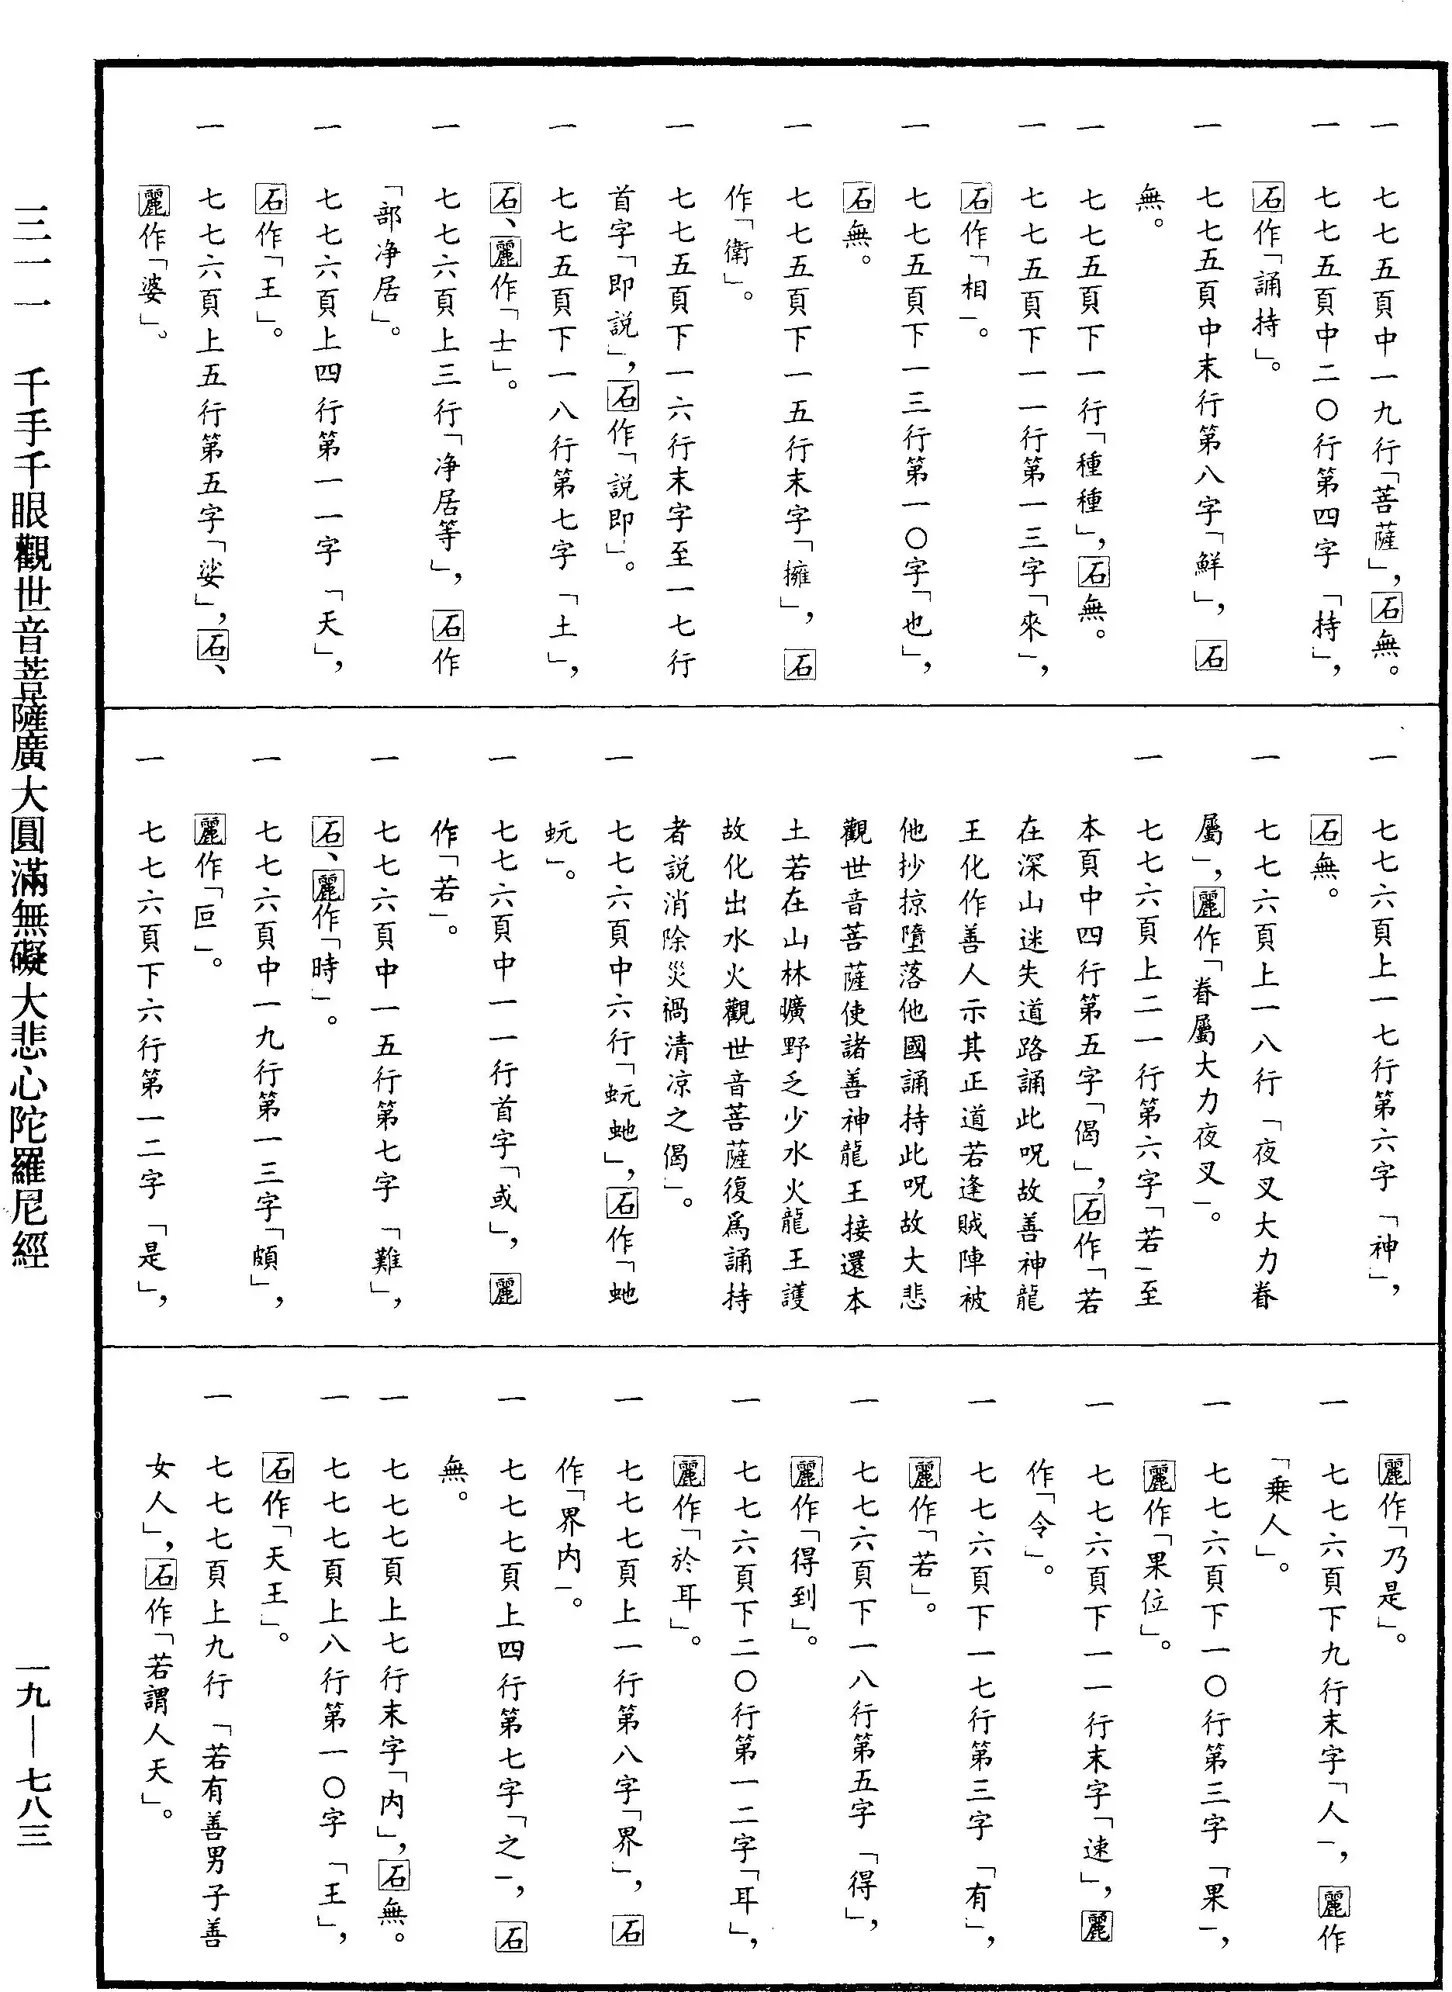 一　七七五頁中一九行「菩薩」，石無。
一　七七五頁中二〇行第四字「持」，
石作「誦持」。
一　七七五頁中末行第八字「鮮」，石
無。
一　七七五頁下一行「種種」，石無。
一　七七五頁下一一行第一三字「來」，
石作「相」。
一　七七五頁下一三行第一〇字「也」，
石無。
一　七七五頁下一五行末字「擁」，石
作「衛」。
一　七七五頁下一六行末字至一七行
首字「即説」，石作「説即」。
一　七七五頁下一八行第七字「土」，
石、麗作「士」。
一　七七六頁上三行「净居等」，石作
「部净居」。
一　七七六頁上四行第一一字「天」，
石作「王」。
一　七七六頁上五行第五字「娑」，石、
麗作「婆」。
一　七七六頁上一七行第六字「神」，
石無。
一　七七六頁上一八行「夜叉大力眷
屬」，麗作「眷屬大力夜叉」。
一　七七六頁上二一行第六字「若」至
本頁中四行第五字「偈」，石作「若
在深山迷失道路誦此呪故善神龍
王化作善人示其正道若逢賊陣被
他抄掠墮落他國誦持此呪故大悲
觀世音菩薩使諸善神龍王接還本
土若在山林曠野乏少水火龍王護
故化出水火觀世音菩薩復爲誦持
者説消除災禍清凉之偈」。
一　七七六頁中六行「蚖虵」，石作「虵
蚖」。
一　七七六頁中一一行首字「或」，麗
作「若」。
一　七七六頁中一五行第七字「難」，
石、麗作「時」。
一　七七六頁中一九行第一三字「頗」，
麗作「叵」。
一　七七六頁下六行第一二字「是」，
麗作「乃是」。
一　七七六頁下九行末字「人」，麗作
「乘人」。
一　七七六頁下一〇行第三字「果」，
麗作「果位」。
一　七七六頁下一一行末字「速」，麗
作「令」。
一　七七六頁下一七行第三字「有」，
麗作「若」。
一　七七六頁下一八行第五字「得」，
麗作「得到」。
一　七七六頁下二〇行第一二字「耳」，
麗作「於耳」。
一　七七七頁上一行第八字「界」，石
作「界内」。
一　七七七頁上四行第七字「之」，石
無。
一　七七七頁上七行末字「内」，石無。
一　七七七頁上八行第一〇字「王」，
石作「天王」。
一　七七七頁上九行「若有善男子善
女人」，石作「若謂人天」。
三一一　千手千眼觀世音菩薩廣大圓滿無礙大悲心陀羅尼經
一九—七八三